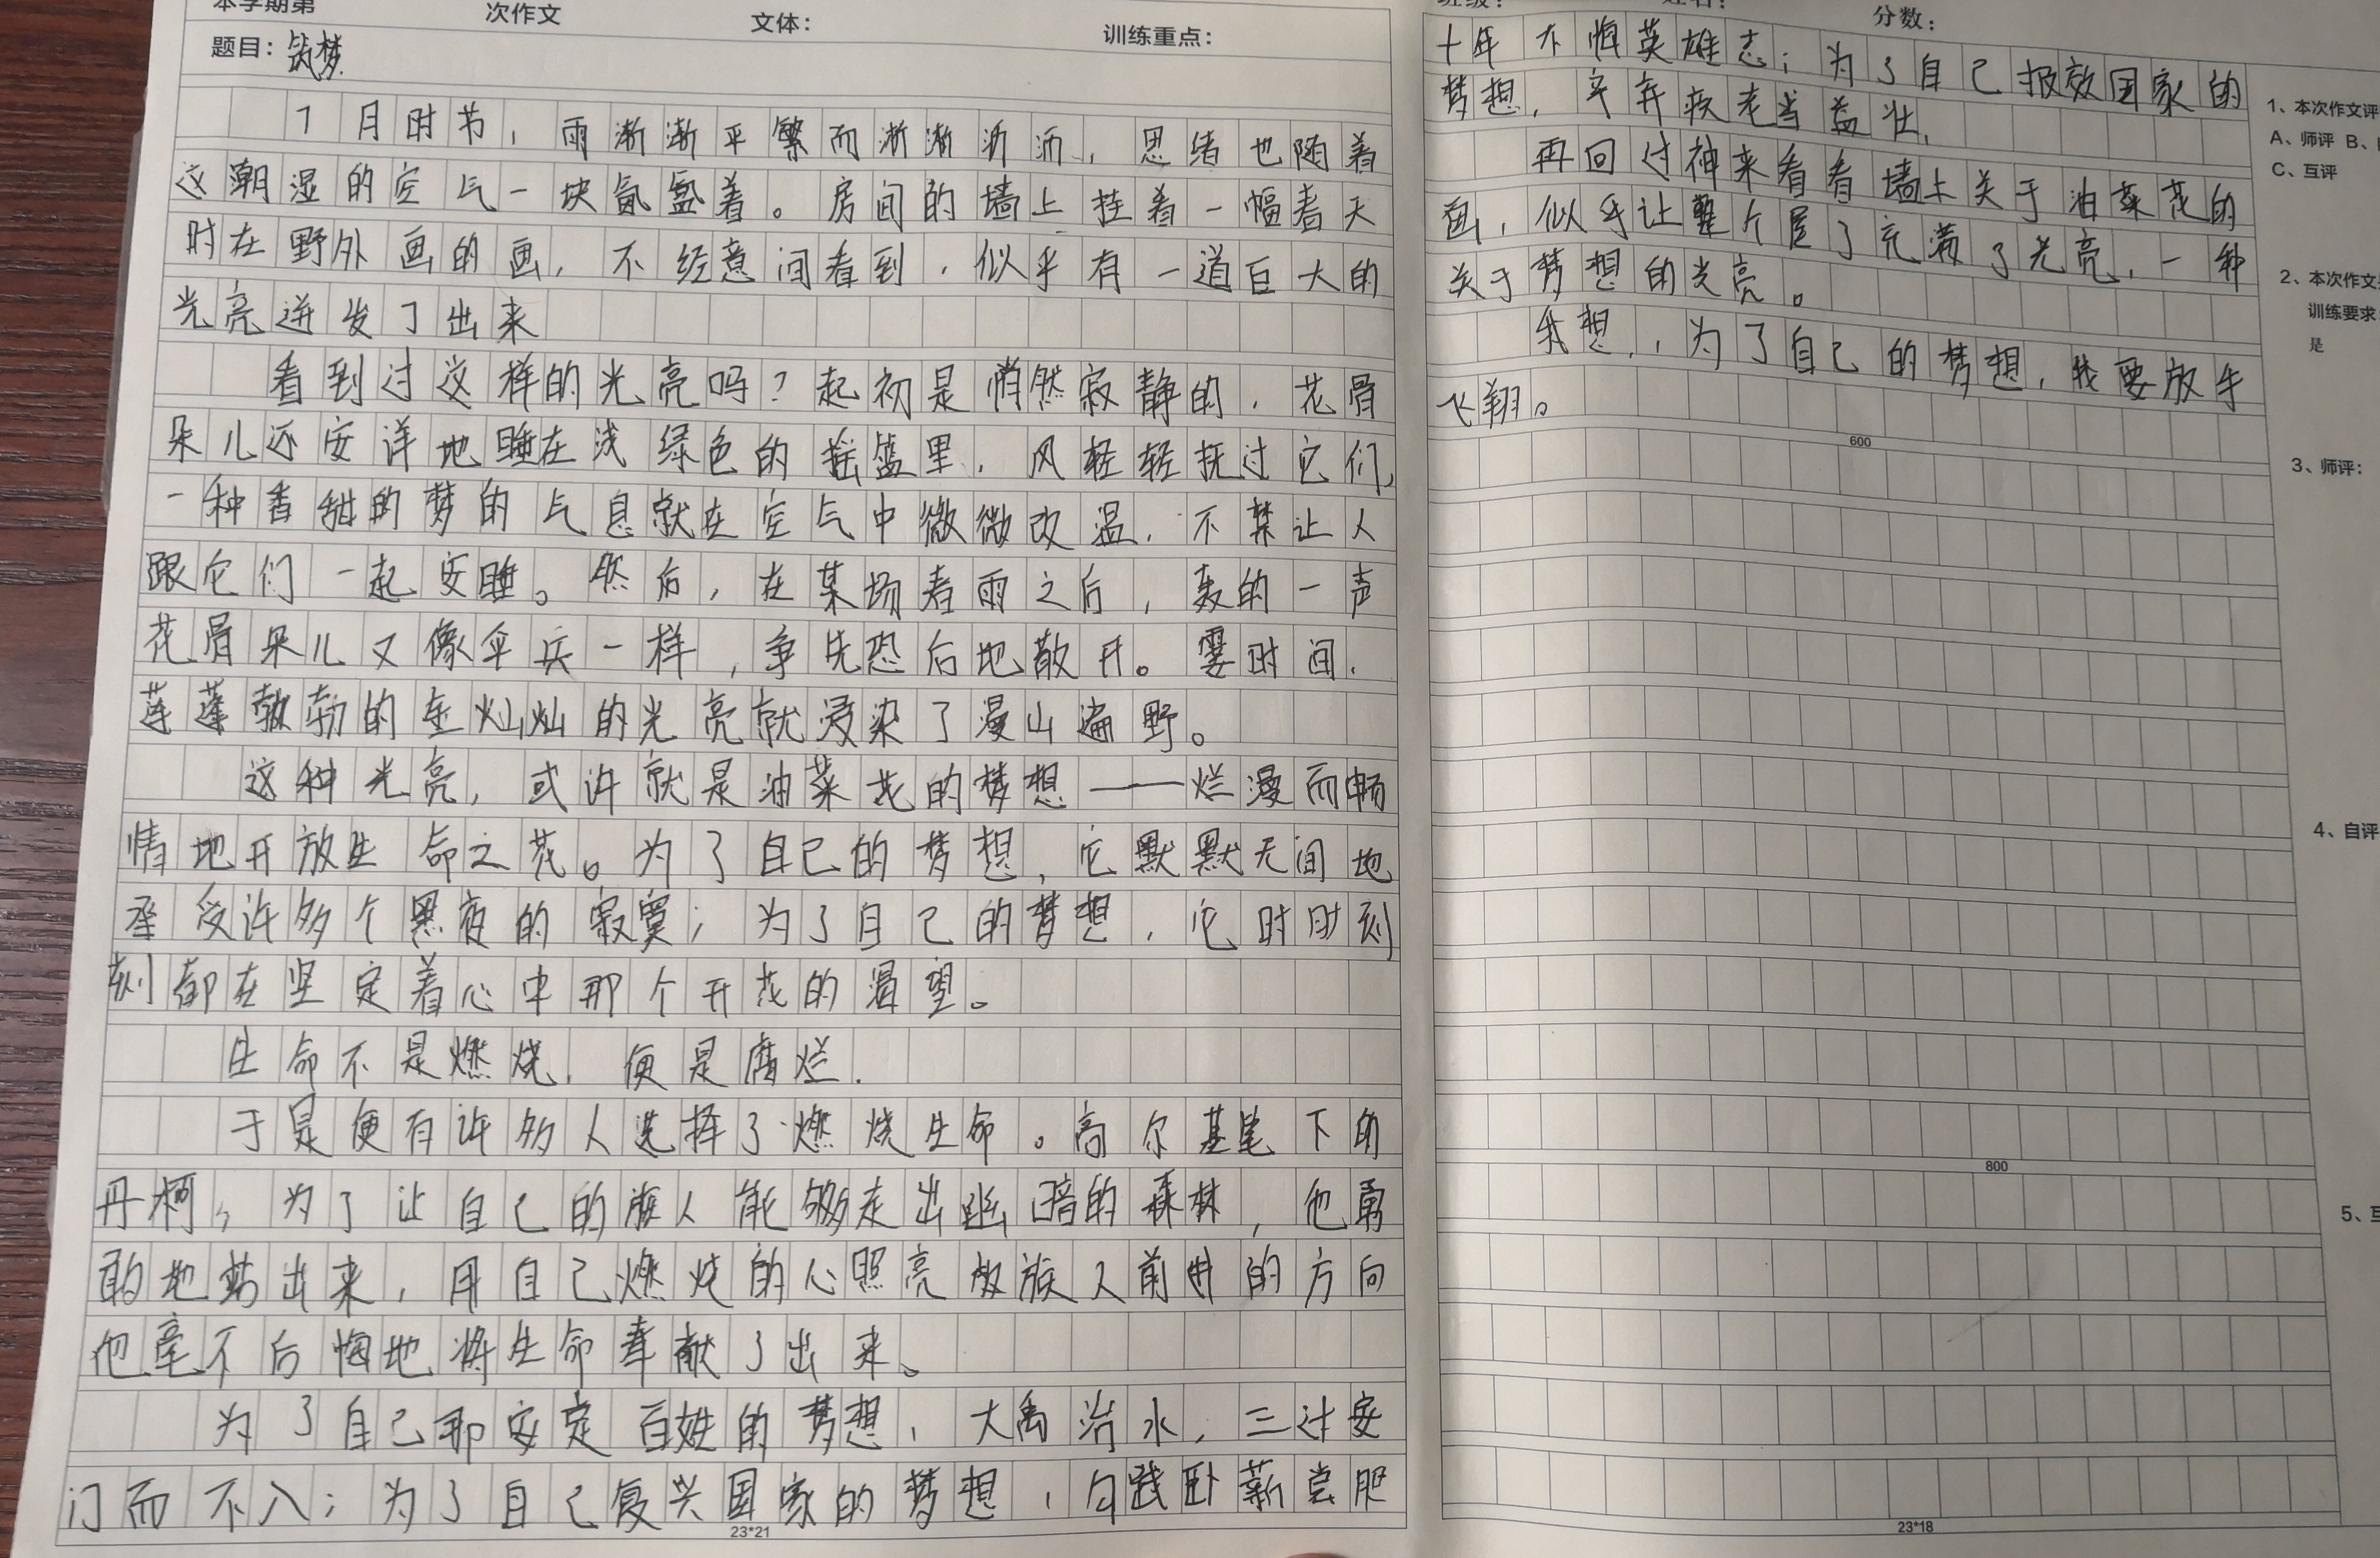 本学期第 次作文 文体： 训练重点：
题目：筑梦
7月时节，雨渐渐平繁而淅淅沥沥，思绪也随着
这潮湿的空气一块氤氲着。房间的墙上挂着一幅春天
时在野外画的画，不经意间看到，似乎有一道巨大的
光亮迸发了出来
看到过这样的光亮吗？起初是悄然寂静的，花骨
朵儿还安详地睡在浅绿色的摇篮里，风轻轻抚过它们，
一种香甜的梦的气息就在空气中微微改温，不禁让人
跟它们一起安睡。然后，在某场春雨之后，轰的一声
花骨朵儿又像伞兵一样，争先恐后地散开。霎时间，
蓬蓬勃勃的金灿灿的光亮就浸染了漫山遍野。
这种光亮，或许就是油菜花的梦想——烂漫而畅
情地开放生命之花。为了自己的梦想，它默默无间地
承受许多个黑夜的寂寞；为了自己的梦想，它时时刻
刻都在坚定着心中那个开花的渴望。
生命不是燃烧，便是腐烂.
于是便有许多人选择了燃烧生命。高尔基笔下的
丹柯，为了让自己的族人能够走出幽暗的森林，他勇
敢地站出来，用自己燃烧的心照亮族人前进的方向
他毫不后悔地将生命奉献了出来。
为了自己那安定百姓的梦想，大禹治水，三过家
门而不入；为了自己复兴国家的梦想，勾践卧薪尝胆
23*21
班级： 姓名： 分数：
十年不悔英雄志；为了自己报效国家的
梦想，辛弃疾老当益壮.
再回过神来看看墙上关于油菜花的
画，似乎让整个屋子充满了光亮，一种
关于梦想的光亮。
我想，为了自己的梦想，我要放手
飞翔。
600
800
23*18
1、本次作文评
A、师评 B、
C、互评
2、本次作文
训练要求
是
3、师评：
4、自评
5、互